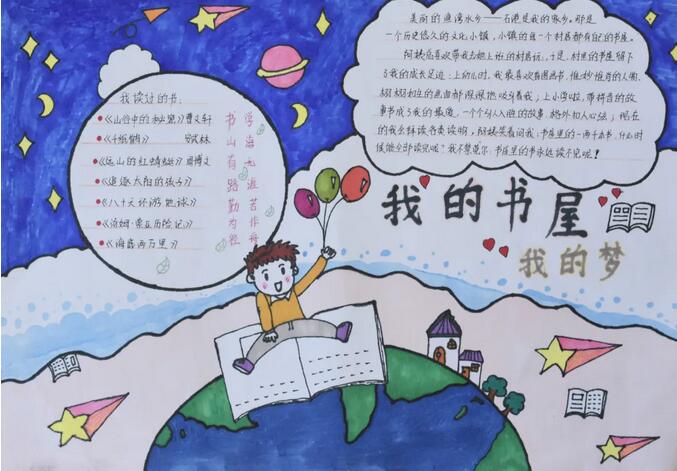 我读过的书:
《山谷中的秘密》曹文轩
《千纸鹤》
《远山的红蜻蜓》周博文
《追逐太阳的孩子》
《八十天环游地球》
《汤姆·索亚历险记》
《海底两万里》
书山有路勤为径
学海无涯苦作舟
美丽的渔湾水乡——石港是我的家乡。那是
一个历史悠久的文化小镇，小镇的每一个村居都有自己的书屋。
喜欢带我去她上班的村居玩，于是，村里的书屋留下
了我的成长足迹：上幼儿时，我最喜欢有图画书，惟妙惟肖的人物，
栩栩如生的画面都深深地吸引着我；上小学啦，带拼音的故
事书成了我的最爱，一个个引人入胜的故事，格外扣人心弦；现在
的我么样读各类读物，笑着问我：书屋里的一两千本书，什么时
候能全部读完呢？我不禁莞尔：书屋里的书永远读不完呢！
我的书屋
我的梦